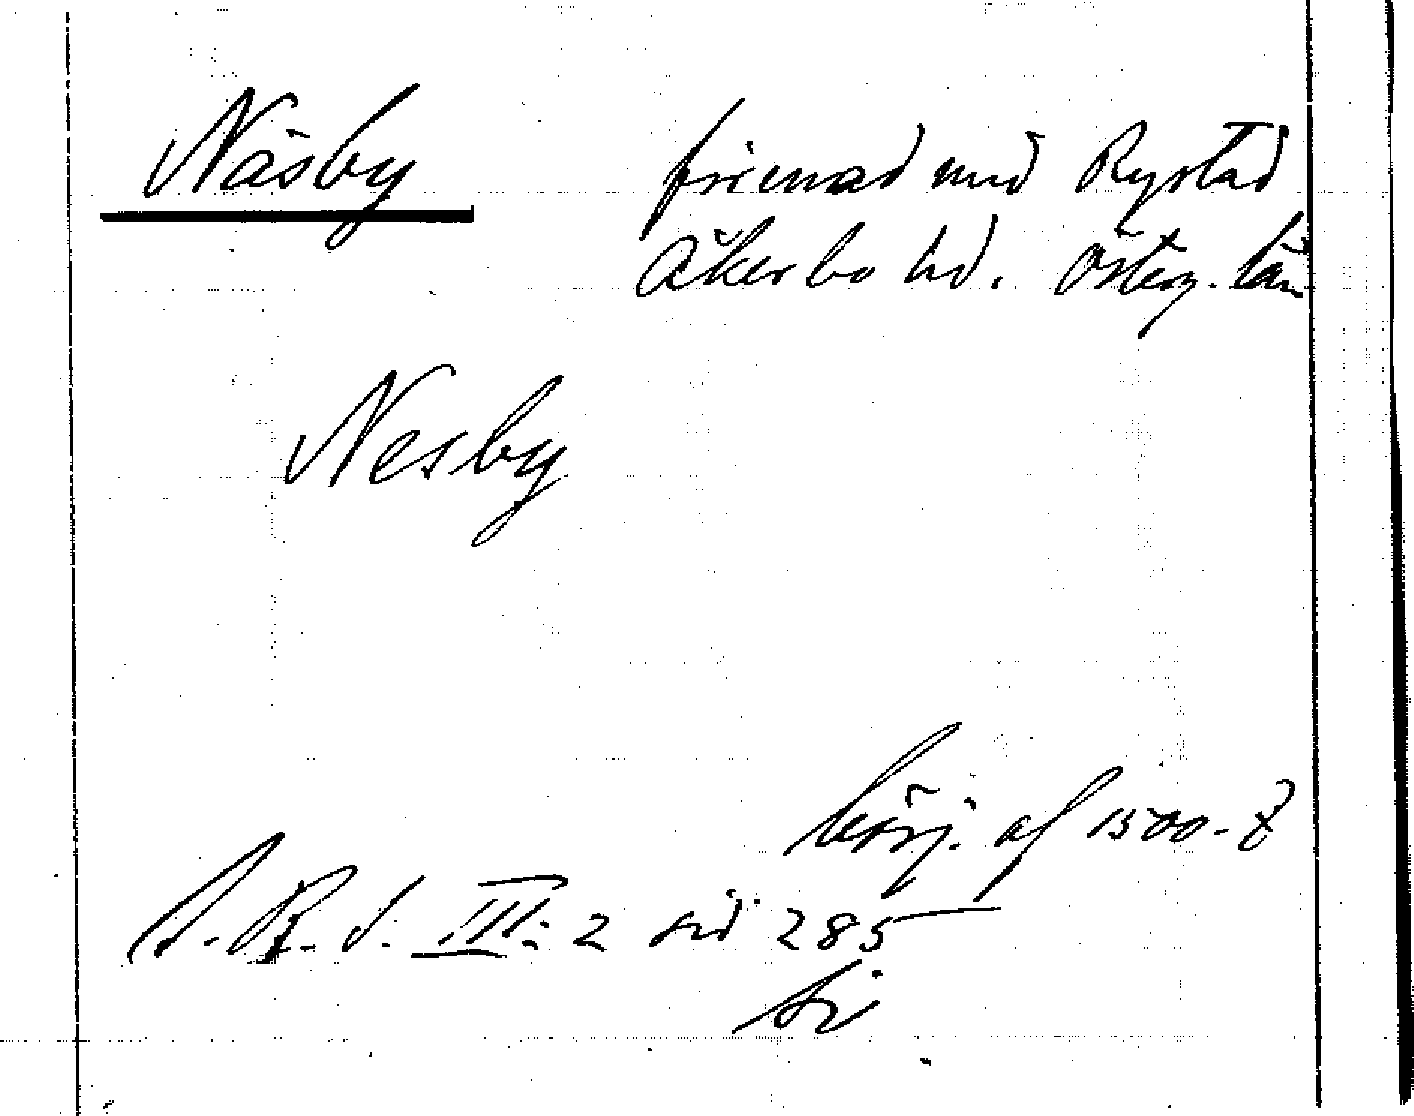 Näsby förenad med Rystad
Åkerbo hd. Österg. län
Nesby
börj. af 1500-t
S.R.S. III:2 sid 285